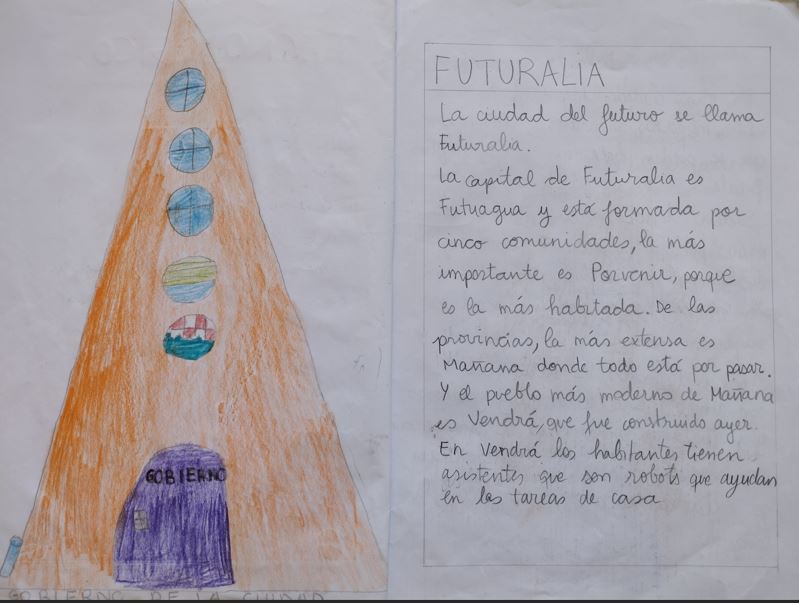 GOBIERNO
GOBIERNO DE LA CIUDAD
FUTURALIA
La ciudad del futuro se llama
Futuralia.
La capital de Futuralia es
Futuagua y está formada por
cinco comunidades, la más
importante es Porvenir, porque
es la más habitada. De las
provincias, la más extensa es
Mañana donde todo está por pasar.
Y el pueblo más moderno de Mañana
es Vendrá, que fue construido ayer.
En Vendrá los habitantes tienen
asistentes que son robots que ayudan
en las tareas de casa